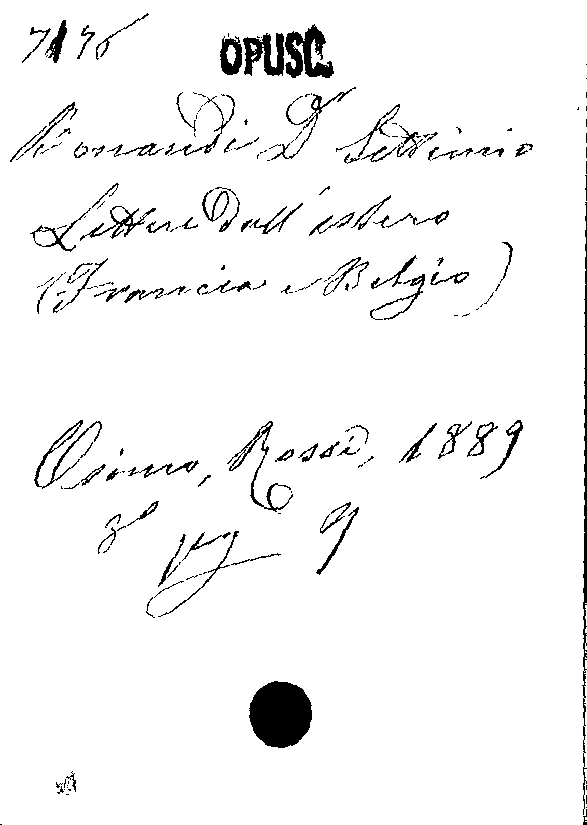 7176
OPUSC.
Bonarelli Dr Settimio
Lettere dall'estero
(Francia e Belgio)
Osimo, Rossi, 1889
8° pg 9